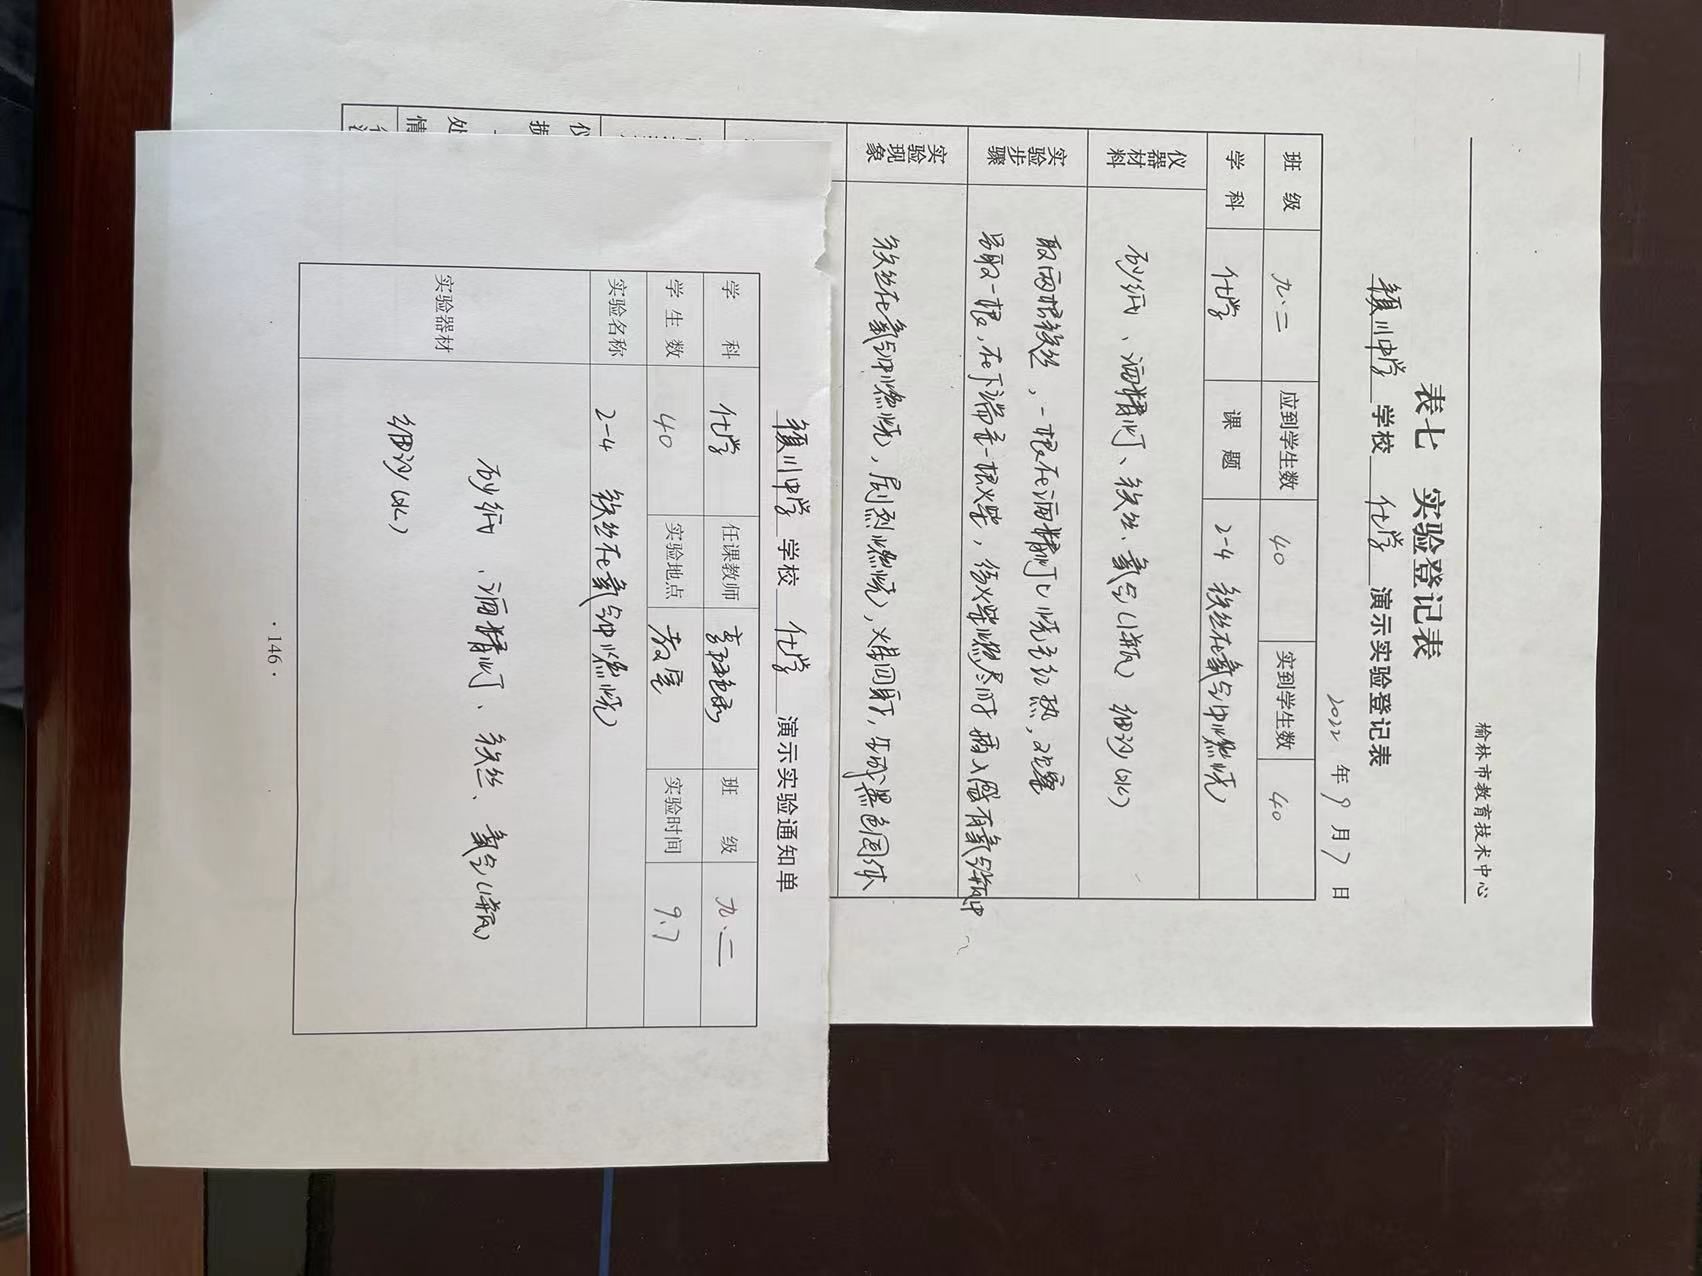 榆林市教育技术中心
表七 实验登记表
2022 年 9 月 7 日
镇川中学 学校 化学 演示实验登记表
班级 九.二 应到学生数 40 实到学生数 40
学科 化学 课题 2-4 铁丝在氧气中燃烧
仪器材料 砂纸、酒精灯、铁丝、氧气(1瓶) 细沙(水)
实验步骤 取两根铁丝,一根在酒精灯上烧至红热,观察
另取一根,在下端系一根火柴,待火柴燃尽时插入盛有氧气瓶中
实验现象 铁丝在氧气中燃烧,剧烈燃烧,火星四射,生成黑色固体
镇川中学 学校 化学 演示实验通知单
学科 化学 任课教师 班级 九.二
学生数 40 实验地点 教室 实验时间 9.7
实验名称 2-4 铁丝在氧气中燃烧
实验器材 砂纸、酒精灯、铁丝、氧气(1瓶)
细沙(水)
· 146 ·